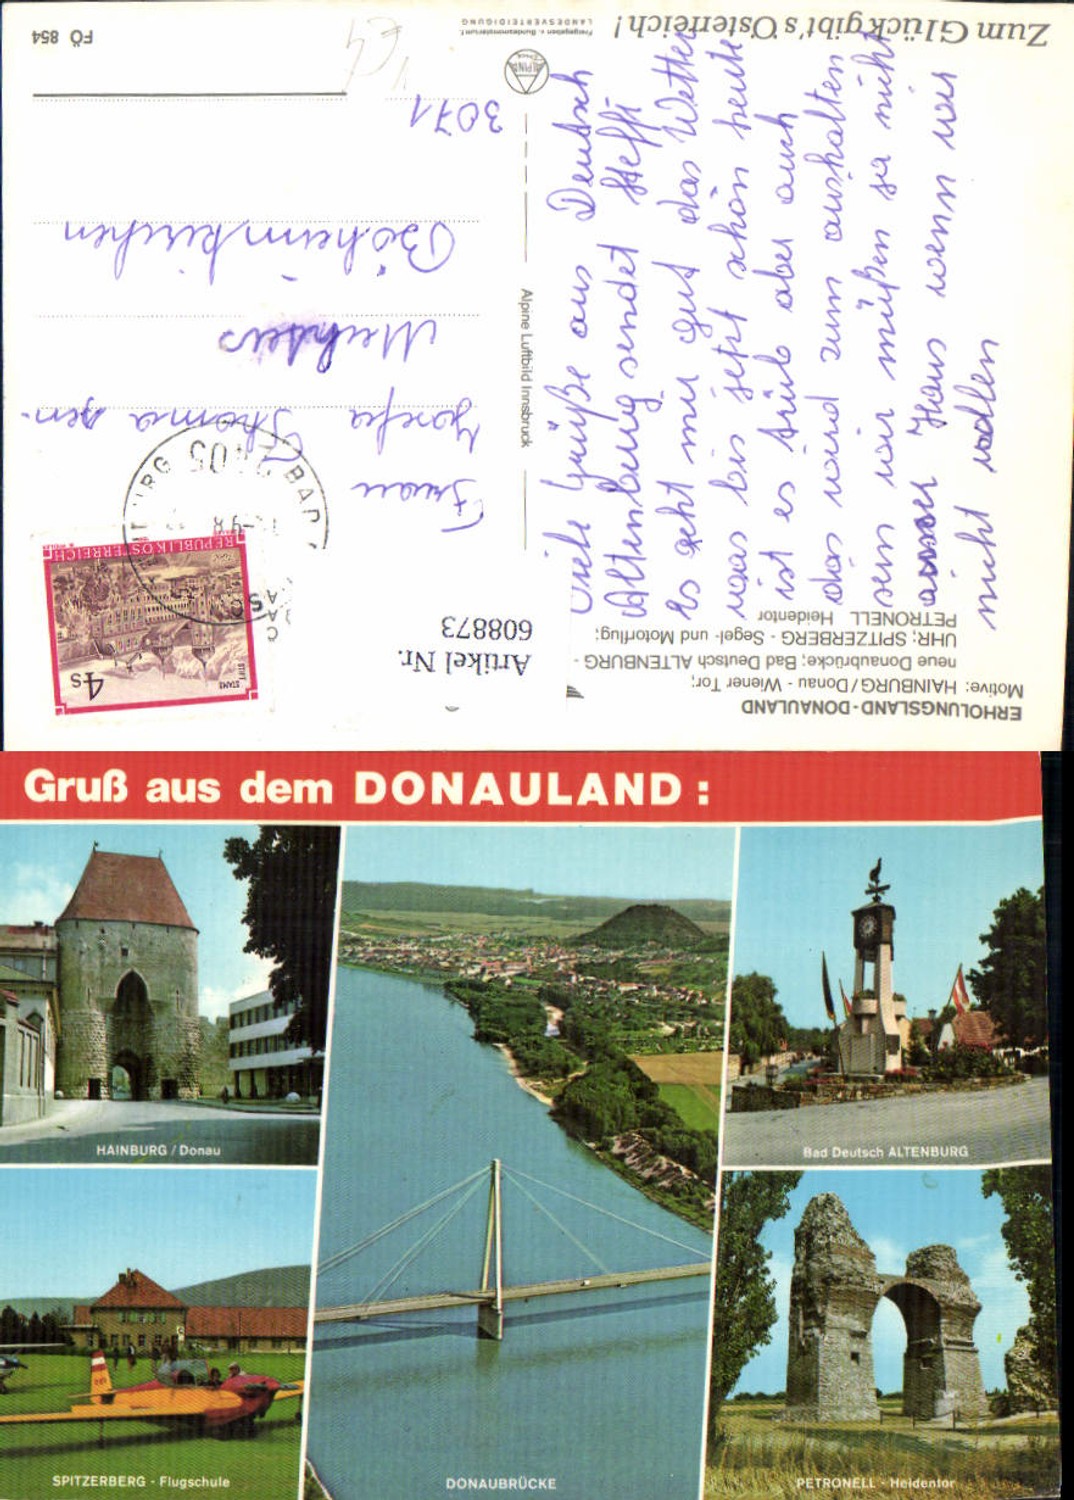 Zum Glück gibt's Österreich!
Freigegeben v. Bundesministerium f.
LANDESVERTEIDIGUNG
FÖ 854
ERHOLUNGSLAND-DONAULAND
Motive: HAINBURG/Donau - Wiener Tor;
neue Donaubrücke; Bad Deutsch ALTENBURG -
UHR; SPITZERBERG - Segel- und Motorflug;
PETRONELL Heidentor
Artikel Nr.
608873
Alpine Luftbild Innsbruck
ALPINE
REPUBLIK ÖSTERREICH
STIFT
STAMS
4s
2405
BAD
Viele Grüße aus Deutsch
Altenburg sendet Steffi
Es geht mir gut das Wetter
war bis jetzt schön heute
ist es trüb aber auch
das wird zum aushalten
sein wir müßen ja nicht
ausser Haus wenn wir
nicht wollen
Frau
Josefa Thoma sen.
Böheimkirchen
3071
Gruß aus dem DONAULAND:
HAINBURG/Donau
Bad Deutsch ALTENBURG
SPITZERBERG - Flugschule
DONAUBRÜCKE
PETRONELL - Heidentor